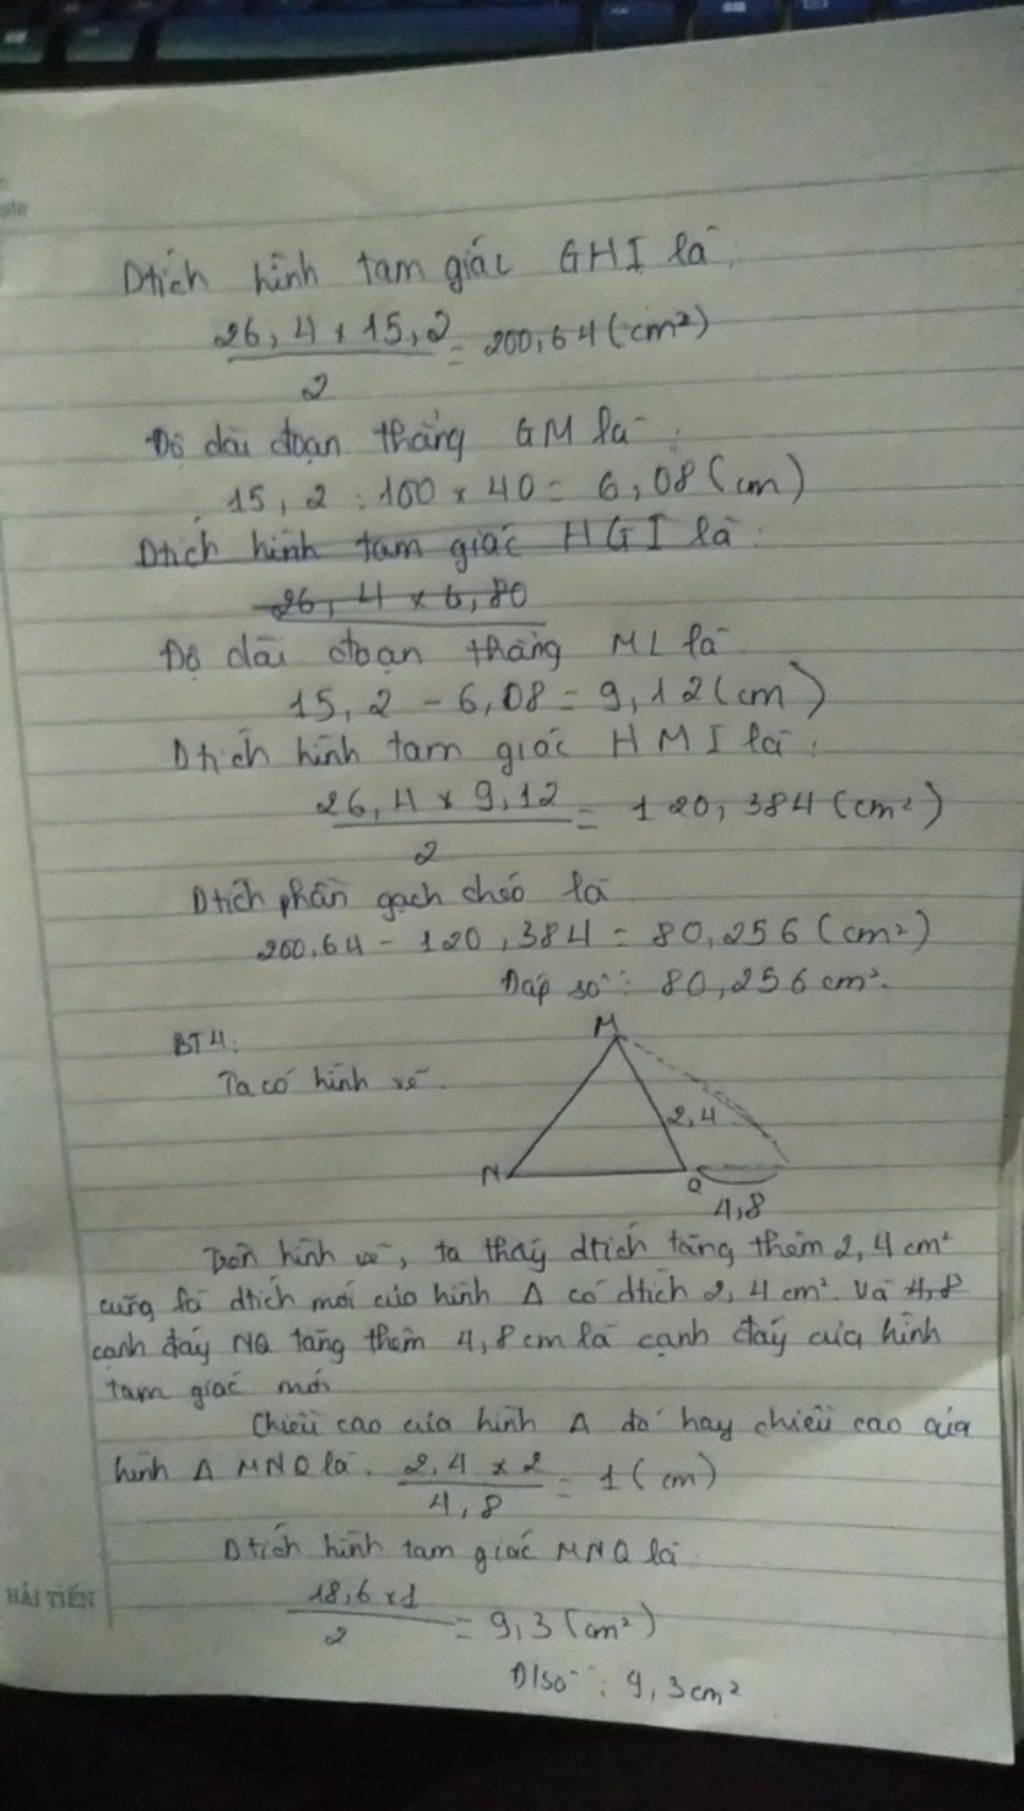 Dtích hình tam giác GHI là:
26,4 x 15,2 / 2 = 200,64 (cm²)
Độ dài đoạn thẳng GM là:
15,2 : 100 x 40 = 6,08 (cm)
Dtích hình tam giác HGI là:
26,4 x 6,80
Độ dài đoạn thẳng ML là
15,2 - 6,08 = 9,12 (cm)
Dtích hình tam giác HMI là:
26,4 x 9,12 / 2 = 120,384 (cm²)
Dtích phần gạch chéo là
200,64 - 120,384 = 80,256 (cm²)
Đáp số: 80,256 cm².
BT4:
Ta có hình vẽ.
M
2,4
N
Q
4,8
Trên hình vẽ, ta thấy dtích tăng thêm 2,4 cm²
cũng là dtích mới của hình Δ có dtích 2,4 cm². Và 4,8
cạnh đáy NQ tăng thêm 4,8 cm là cạnh đáy của hình
tam giác mới
Chiều cao của hình Δ đó hay chiều cao của
hình Δ MNQ là. 2,4 x 2 / 4,8 = 1 (cm)
Dtích hình tam giác MNQ là
18,6 x 1 / 2 = 9,3 (cm²)
Đ/số: 9,3 cm²
HẢI TIẾN